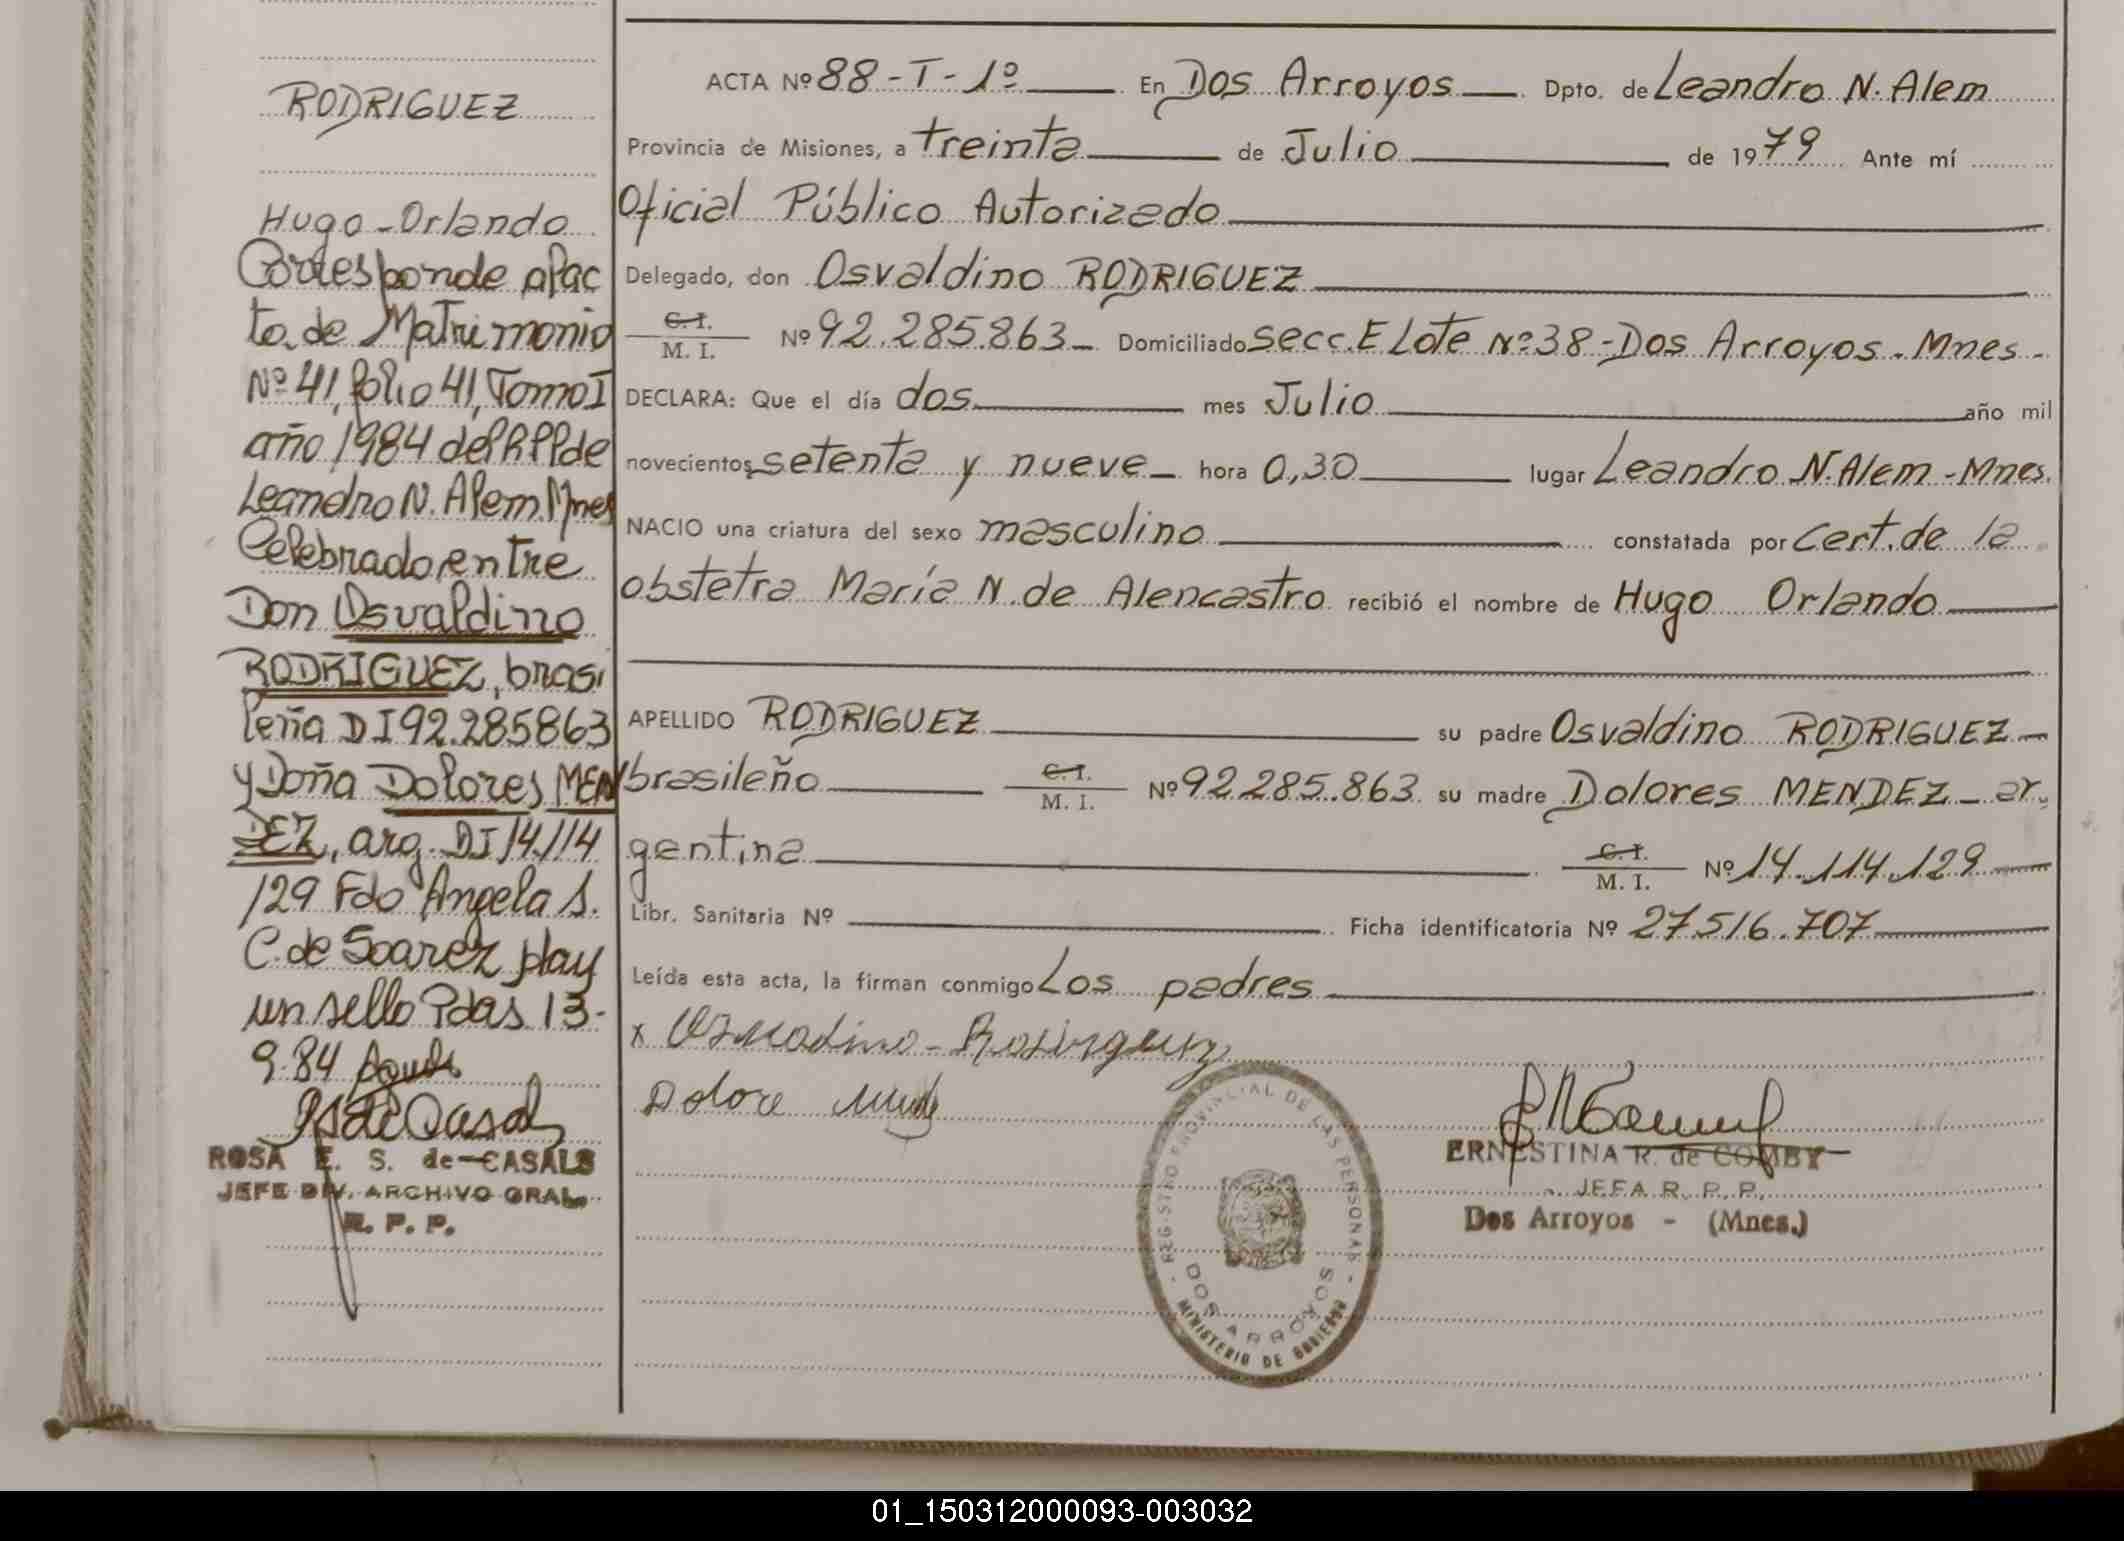 RODRIGUEZ
Hugo-Orlando
Corresponde al ac
to. de Matrimonio
Nº 41, folio 41, Tomo I
año 1984 del RPP de
Leandro N. Alem. Mnes
Celebrado entre
Don Osvaldino
RODRIGUEZ, brasi
leña DI 92.285863
y Doña Dolores MEN
DEZ, arg. DI 14.114
129 Fdo Angela S.
C. de Soarez hay
un sello Pdas 13-
9-84
ROSA E. S. de CASALS
JEFE DIV. ARCHIVO GRAL.
R. P. P.
ACTA Nº 88-T-1º En Dos Arroyos Dpto. de Leandro N. Alem
Provincia de Misiones, a treinta de Julio de 1979 Ante mí
Oficial Público Autorizado
Delegado, don Osvaldino RODRIGUEZ
C.I.
M. I. Nº 92.285.863- Domiciliado Secc. E Lote Nº 38-Dos Arroyos-Mnes-
DECLARA: Que el día dos mes Julio año mil
novecientos setenta y nueve hora 0,30 lugar Leandro N. Alem-Mnes.
NACIO una criatura del sexo masculino constatada por Cert. de la
obstetra María N. de Alencastro recibió el nombre de Hugo Orlando
APELLIDO RODRIGUEZ su padre Osvaldino RODRIGUEZ
brasileño C.I.
M. I. Nº 92.285.863 su madre Dolores MENDEZ - ar
gentina C.I.
M. I. Nº 14.114.129
Libr. Sanitaria Nº Ficha identificatoria Nº 27.516.707
Leída esta acta, la firman conmigo Los padres
x Osvaldino - Rosirguez
Dolore
REGISTRO PROVINCIAL DE LAS PERSONAS
DOS ARROYOS
MINISTERIO DE GOBIERNO
ERNESTINA R. de COMBY
JEFA R. P. P.
Dos Arroyos - (Mnes.)
01_150312000093-003032